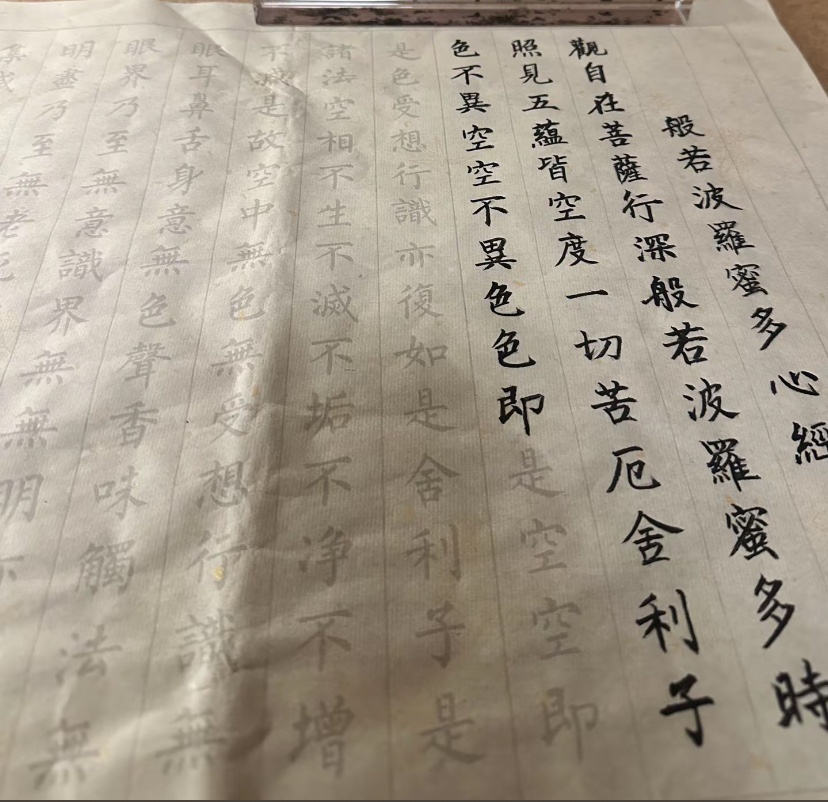 般若波羅蜜多心經
觀自在菩薩行深般若波羅蜜多時
照見五蘊皆空度一切苦厄舍利子
色不異空空不異色色即是空空即
是色受想行識亦復如是舍利子是
諸法空相不生不滅不垢不净不增
不減是故空中無色無受想行識無
眼耳鼻舌身意無色聲香味觸法無
眼界乃至無意識界無無明亦
明盡乃至無老